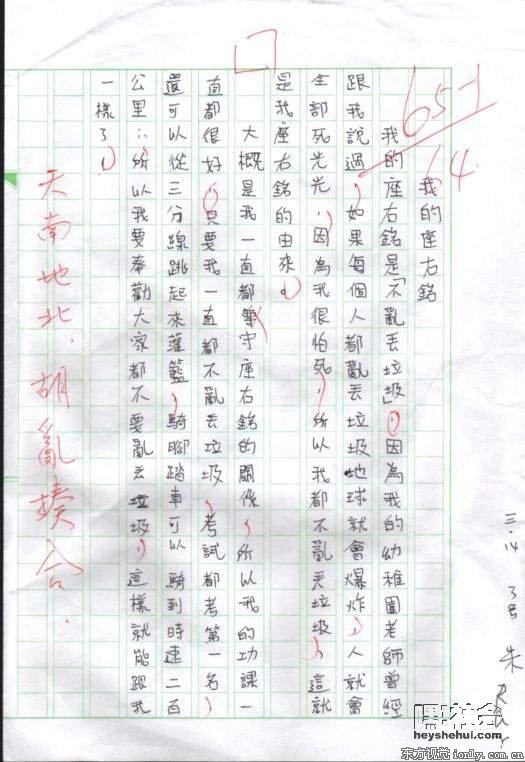 三.14 3号 朱
我的座右銘
65-1
64.
我的座右銘是「不亂丟垃圾」，因為我的幼稚園老師曾經
跟我說過，如果每個人都亂丟垃圾地球就會爆炸，人就會
全部死光光，因為我很怕死，所以我都不亂丟垃圾，這就
是我座右銘的由來。
大概是我一直都遵守座右銘的關係，所以我的功課一
直都很好，只要我一直都不亂丟垃圾，考試都考第一名，
還可以從三分線跳起來灌籃，騎腳踏車可以騎到時速二百
公里，所以我要奉勸大家都不要亂丟垃圾，這樣就能跟我
一樣了！
天南地北，胡亂揍合.
heyshehui.com
东方视觉 ionly.com.cn